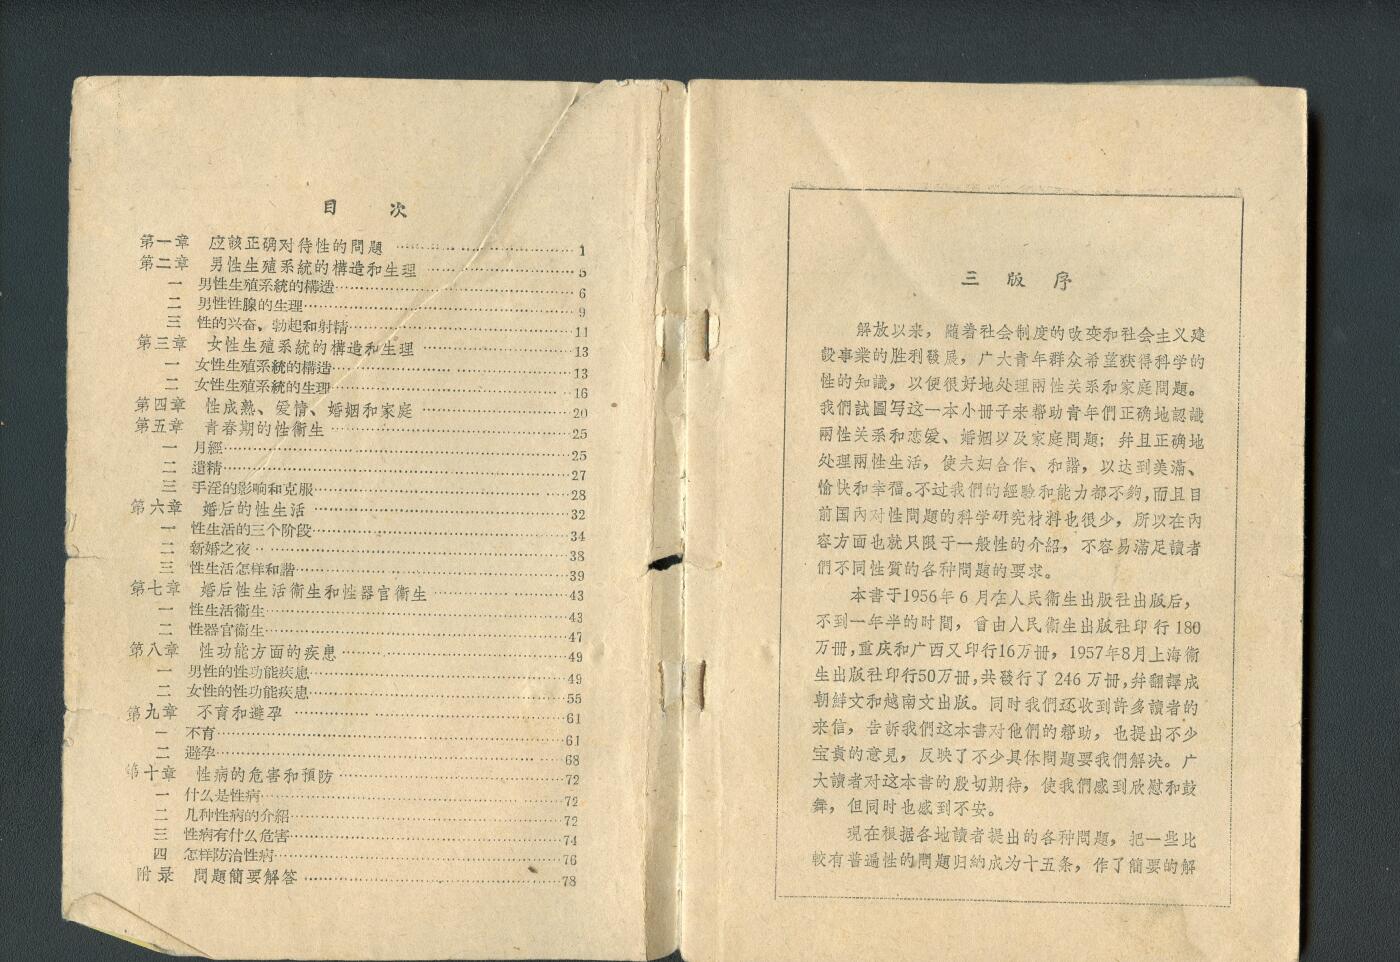 目 次
第一章 应該正确对待性的問題 …… 1
第二章 男性生殖系統的構造和生理 …… 5
一 男性生殖系統的構造 …… 6
二 男性性腺的生理 …… 9
三 性的兴奋、勃起和射精 …… 11
第三章 女性生殖系統的構造和生理 …… 13
一 女性生殖系統的構造 …… 13
二 女性生殖系統的生理 …… 16
第四章 性成熟、爱情、婚姻和家庭 …… 20
第五章 青春期的性衛生 …… 25
一 月經 …… 25
二 遺精 …… 27
三 手淫的影响和克服 …… 28
第六章 婚后的性生活 …… 32
一 性生活的三个阶段 …… 34
二 新婚之夜 …… 38
三 性生活怎样和諧 …… 39
第七章 婚后性生活衛生和性器官衛生 …… 43
一 性生活衛生 …… 43
二 性器官衛生 …… 47
第八章 性功能方面的疾患 …… 49
一 男性的性功能疾患 …… 49
二 女性的性功能疾患 …… 55
第九章 不育和避孕 …… 61
一 不育 …… 61
二 避孕 …… 68
第十章 性病的危害和預防 …… 72
一 什么是性病 …… 72
二 几种性病的介紹 …… 72
三 性病有什么危害 …… 74
四 怎样防治性病 …… 76
附录 問題簡要解答 …… 78
三 版 序
解放以来，随着社会制度的改变和社会主义建
設事業的胜利發展，广大青年群众希望获得科学的
性的知識，以便很好地处理兩性关系和家庭問題。
我們試圖写这一本小冊子来帮助青年們正确地認識
兩性关系和恋爱、婚姻以及家庭問題；幷且正确地
处理兩性生活，使夫妇合作、和諧，以达到美滿、
愉快和幸福。不过我們的經驗和能力都不夠，而且目
前国內对性問題的科学研究材料也很少，所以在內
容方面也就只限于一般性的介紹，不容易滿足讀者
們不同性質的各种問題的要求。
本書于1956年6月在人民衛生出版社出版后，
不到一年半的时間，曾由人民衛生出版社印行180
万冊，重庆和广西又印行16万冊，1957年8月上海衛
生出版社印行50万冊，共發行了246万冊，幷翻譯成
朝鮮文和越南文出版。同时我們还收到許多讀者的
来信，告訴我們这本書对他們的帮助，也提出不少
宝貴的意見，反映了不少具体問題要我們解决。广
大讀者对这本書的殷切期待，使我們感到欣慰和鼓
舞，但同时也感到不安。
現在根据各地讀者提出的各种問題，把一些比
較有普遍性的問題归納成为十五条，作了簡要的解